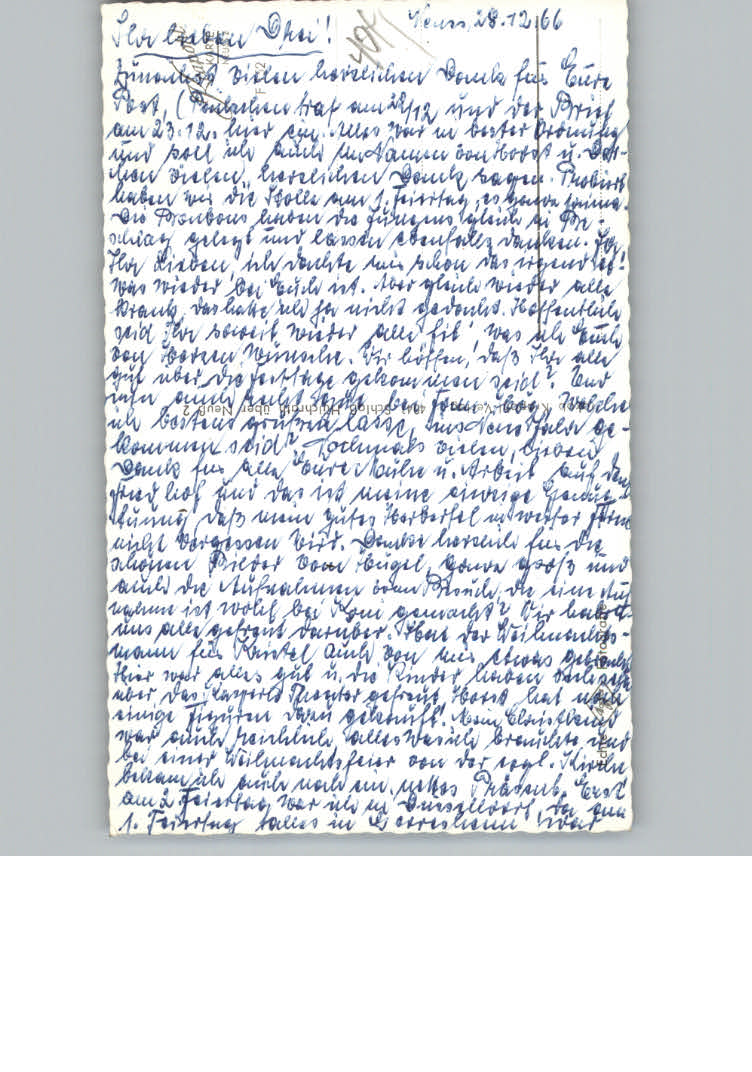 Ihr lieben Drei! Neuss, 28.12.66
Zunächst vielen herzlichen Dank für Eure
Post, (Päckchen traf am 22/12 und der Brief
am 23.12. hier ein. Alles war in bester Ordnung
und soll ich auch im Namen von Horst u.
vielen, herzlichen Dank sagen. Probiert
haben wir die Stolle am 1. Feiertag, es ganz prima.
Die Bonbons haben die Jungens gleich in Be-
schlag gelegt und lassen ebenfalls danken. Ja,
Ihr Lieben, ich dachte mir schon das irgend et-
was wieder bei Euch ist. Aber gleich wieder alle
krank, das hatte ich ja nicht gedacht. Hoffentlich
seid Ihr soweit wieder alle fit! was ich Euch
von Herzen wünsche. Wir hoffen, daß Ihr alle
gut über die Festtage gekommen seid? Und
auch bei Fam.
ich bestens grüßen lasse, ins Neue Jahr ge-
kommen seid? Nochmals vielen, lieben
Dank für alle Eure Mühe u. Arbeit auf dem
Friedhof und das ist meine einzige Genug-
tuung, daß mein gutes in weiter Ferne
nicht vergessen wird. Danke herzlich für die
schönen Bilder vom Hügel, ganz groß und
auch die Aufnahmen vom Besuch, die eine Auf-
nahme ist wohl bei gemacht? Wir haben
uns alle gefreut darüber. Hat der Weihnachts-
mann für auch von mir etwas gebracht?
Hier war alles gut u. die Kinder haben sich sehr
über das Kasperle Theater gefreut, Horst hat noch
einige Figuren dazu gekauft. Mein Christkind
war auch reichlich, alles was ich brauchte und
bei einer Weihnachtsfeier von der evgl. Kirche
bekam ich auch noch ein nettes Präsent. Erst
am 2. Feiertag war ich in Düsseldorf, da am
1. Feiertag alles in Gerresheim war